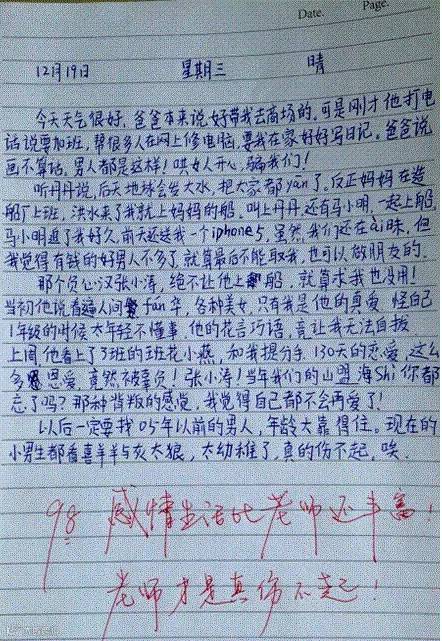 Date.
Page.
12月19日 星期三 晴
今天天气很好,爸爸本来说好带我去商场的,可是刚才他打电
话说要加班,帮很多人在网上修电脑,要我在家好好写日记。爸爸说
画不算话,男人都是这样!哄女人开心,骗我们!
听丹丹说,后天地球会发大水,把大家都yān了。反正妈妈在造
船厂上班,洪水来了我就上妈妈的船,叫上丹丹,还有马小明,一起上船。
马小明追了我好久,前天还送我一个iphone5,虽然我们还在ai昧,但
我觉得有钱的好男人不多了,就算最后不能取我,也可以做朋友的。
那个负心汉张小涛,绝不让他上船,就算求我也没用!
当初他说看遍人间fán华,各种美女,只有我是他的真爱,怪自己
1年级的时候太年轻不懂事,他的花言巧语,竟让我无法自拔
上周他看上了3班的班花小燕,和我提分手,130天的恋爱,这么
多恩爱,竟然不被辜负!张小涛!当年我们的山盟海Shi你都
忘了吗?那种背叛的感觉,我觉得自己都不会再爱了!
以后一定要找05年以前的男人,年龄大靠得住。现在的
小男生都看喜羊羊与灰太狼,太幼稚了,真的伤不起,唉.
98 感情生活比老师还丰富!
老师才是真伤不起!